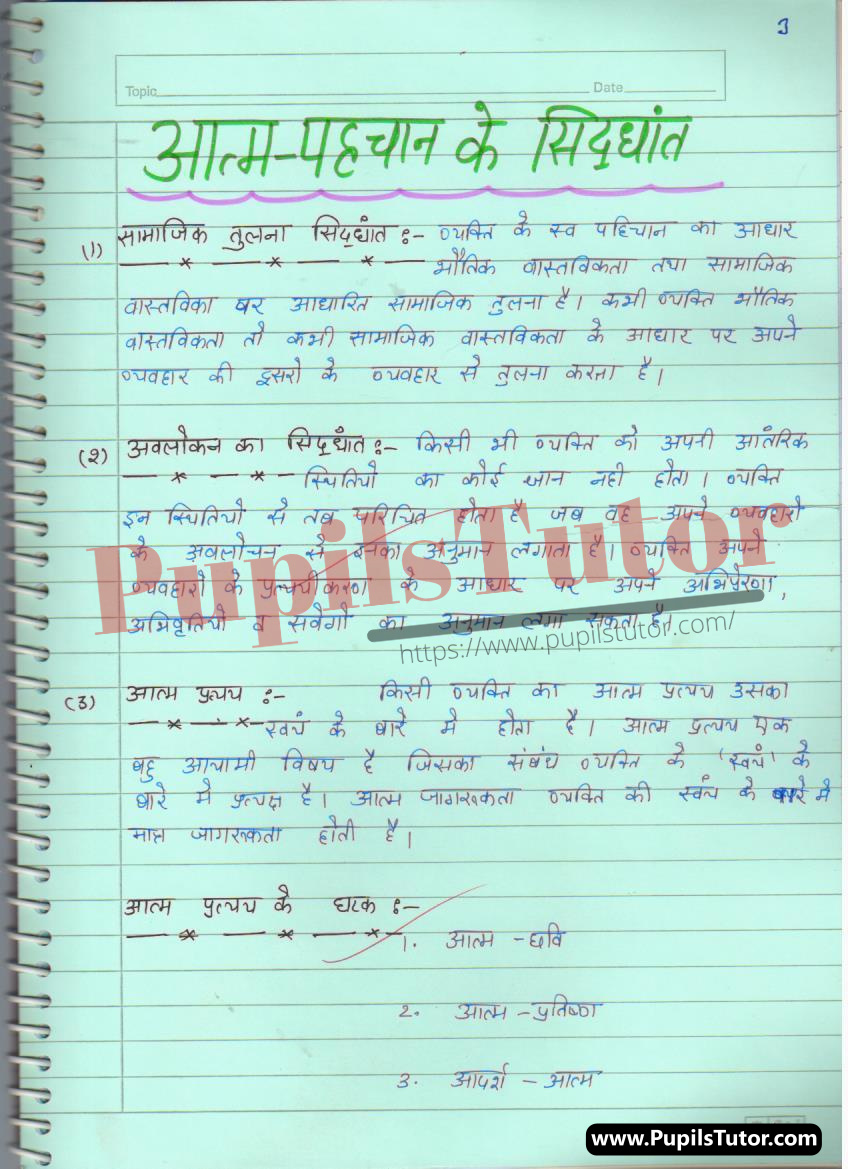 3
Topic Date
आत्म-पहचान के सिद्धांत
(1) सामाजिक तुलना सिद्धांत :- व्यक्ति के स्व पहिचान का आधार
भौतिक वास्तविकता तथा सामाजिक
वास्तविका पर आधारित सामाजिक तुलना है। कभी व्यक्ति भौतिक
वास्तविकता तो कभी सामाजिक वास्तविकता के आधार पर अपने
व्यवहार की दूसरो के व्यवहार से तुलना करता है।
(2) अवलोकन का सिद्धांत :- किसी भी व्यक्ति को अपनी आंतरिक
स्थितियो का कोई ज्ञान नही होता। व्यक्ति
इन स्थितियो से तब परिचित होता है जब वह अपने व्यवहारो
के अवलोचन से इनका अनुमान लगाता है। व्यक्ति अपने
व्यवहारो के प्रत्यक्षीकरण के आधार पर अपने अभिप्रेरणा,
अभिवृतियो व संवेगो का अनुमान लगा सकता है।
PupilsTutor
https://www.pupilstutor.com/
(3) आत्म प्रत्यय :- किसी व्यक्ति का आत्म प्रत्यय उसका
स्वयं के बारे मे होता है। आत्म प्रत्यय एक
बहु आयामी विषय है जिसका संबंध व्यक्ति के 'स्वयं' के
बारे मे प्रत्यक्ष है। आत्म जागरूकता व्यक्ति की स्वंय के बारे मे
मात्र जागरूकता होती है।
आत्म प्रत्यय के घटक :-
1. आत्म - छवि
2. आत्म - प्रतिष्ठा
3. आदर्श - आत्म
www.PupilsTutor.com